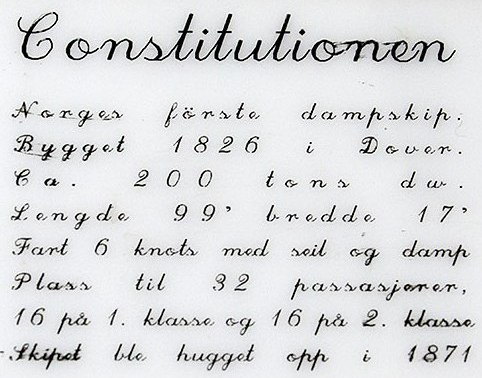 Constitutionen
Norges förste dampskip.
Bygget 1826 i Dover.
Ca. 200 tons dw.
Lengde 99' bredde 17'
Fart 6 knots med seil og damp
Plass til 32 passasjerer,
16 på 1. klasse og 16 på 2. klasse
Skipet ble hugget opp i 1871